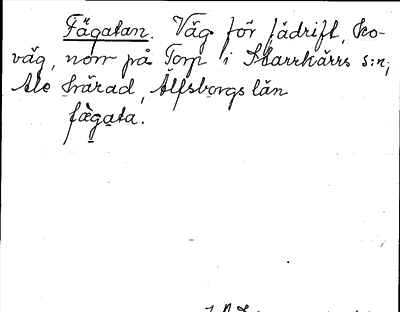 Fägatan. Väg för fädrift, ko-
väg, norr på Torp i Starrkärrs s:n,
Ale härad, Älfsborgs län
fä̀gata.